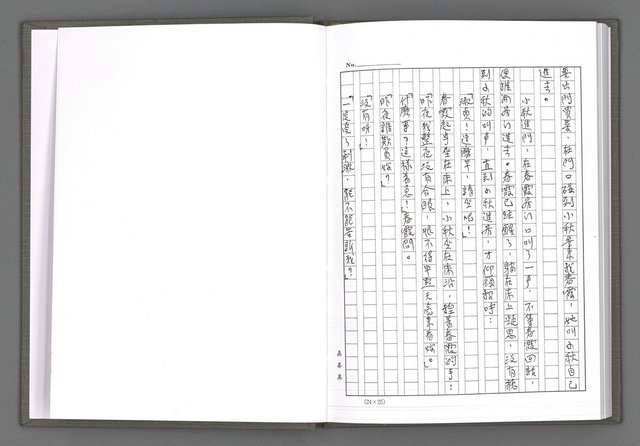 No.
要出門買菜，在門口碰到小秋要來找春霞，她叫小秋自己
進去。
小秋進門，在春霞房门口叫了一声，不等春霞回話，
便推開房门進去。春霞已經醒了，躺在床上凝思，沒有聽
到小秋的叫声，直到小秋進房，才仰頭招呼：
「淑貞！這麼早，請坐啦！」
春霞起身坐在床上，小秋坐在床沿，握著春霞的手：
「昨夜我整夜沒有合眼，恨不得早點天亮來看妳。」
「什麼事？這樣着急！」春霞問。
「昨夜誰欺負妳？」
「沒有呀！」
「一定受了刺激，能不能告訴我？」
(24×25)